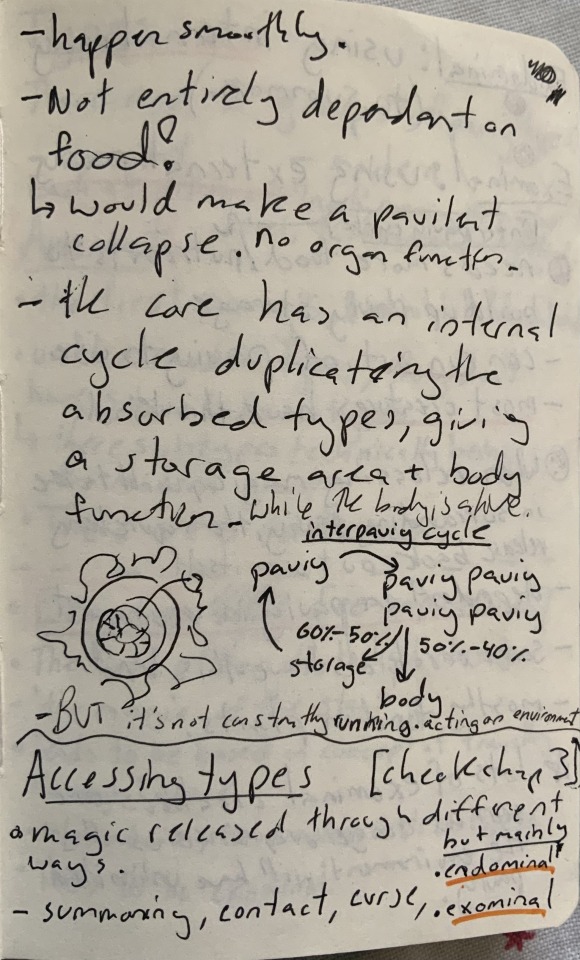 - happen smoothly.
- Not entirely dependant on
food?
↳ would make a pavilent
collapse. no organ function.
- the core has an internal
cycle duplicateing the
absorbed types, giving
a storage area + body
function - while the body is alive.
interpaviy cycle
paviy → paviy paviy
paviy paviy
60%-50% 50%-40%
storage
body
- BUT it's not constantly running. acting on environment
Accessing types [check chap 3]
• magic released through different
ways. but mainly
• endominal
- summoning, contact, curse, • exominal